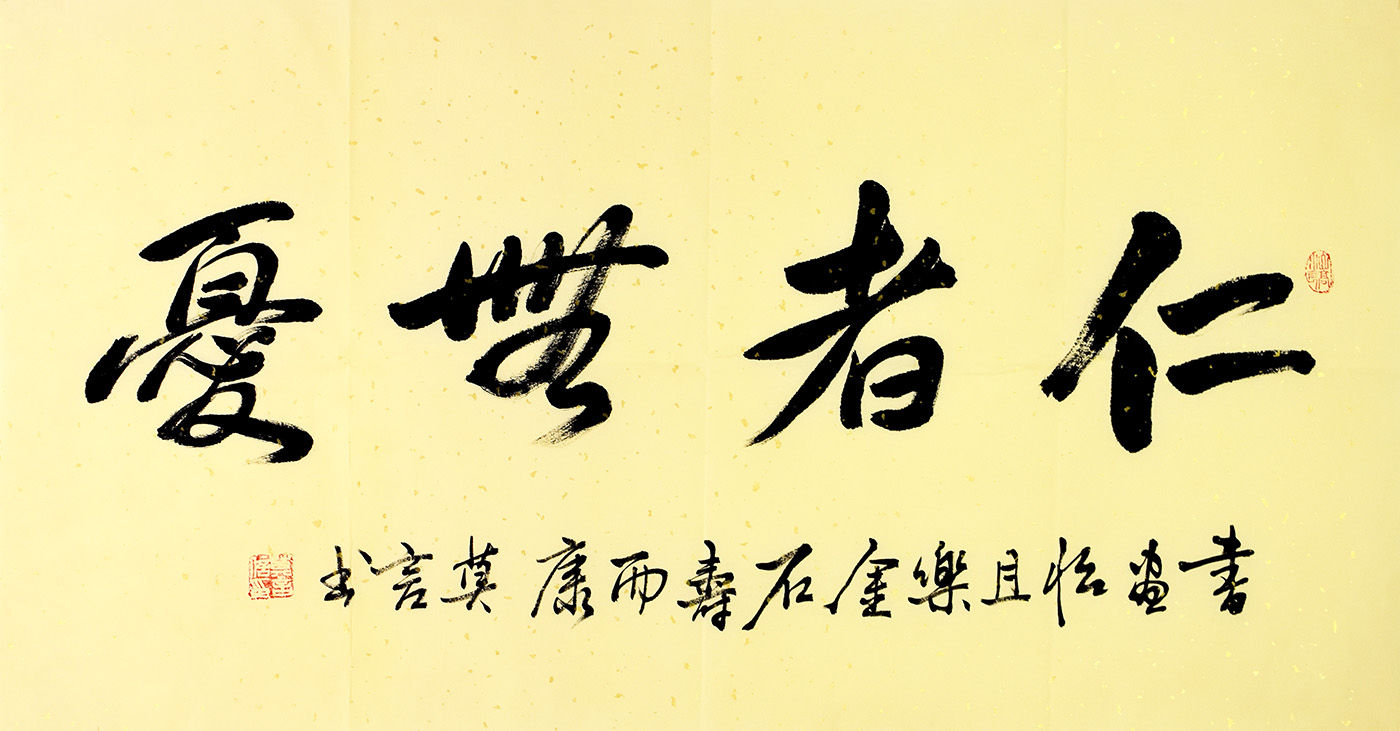 仁者無憂
書畫怡且樂金石壽而康 莫言书